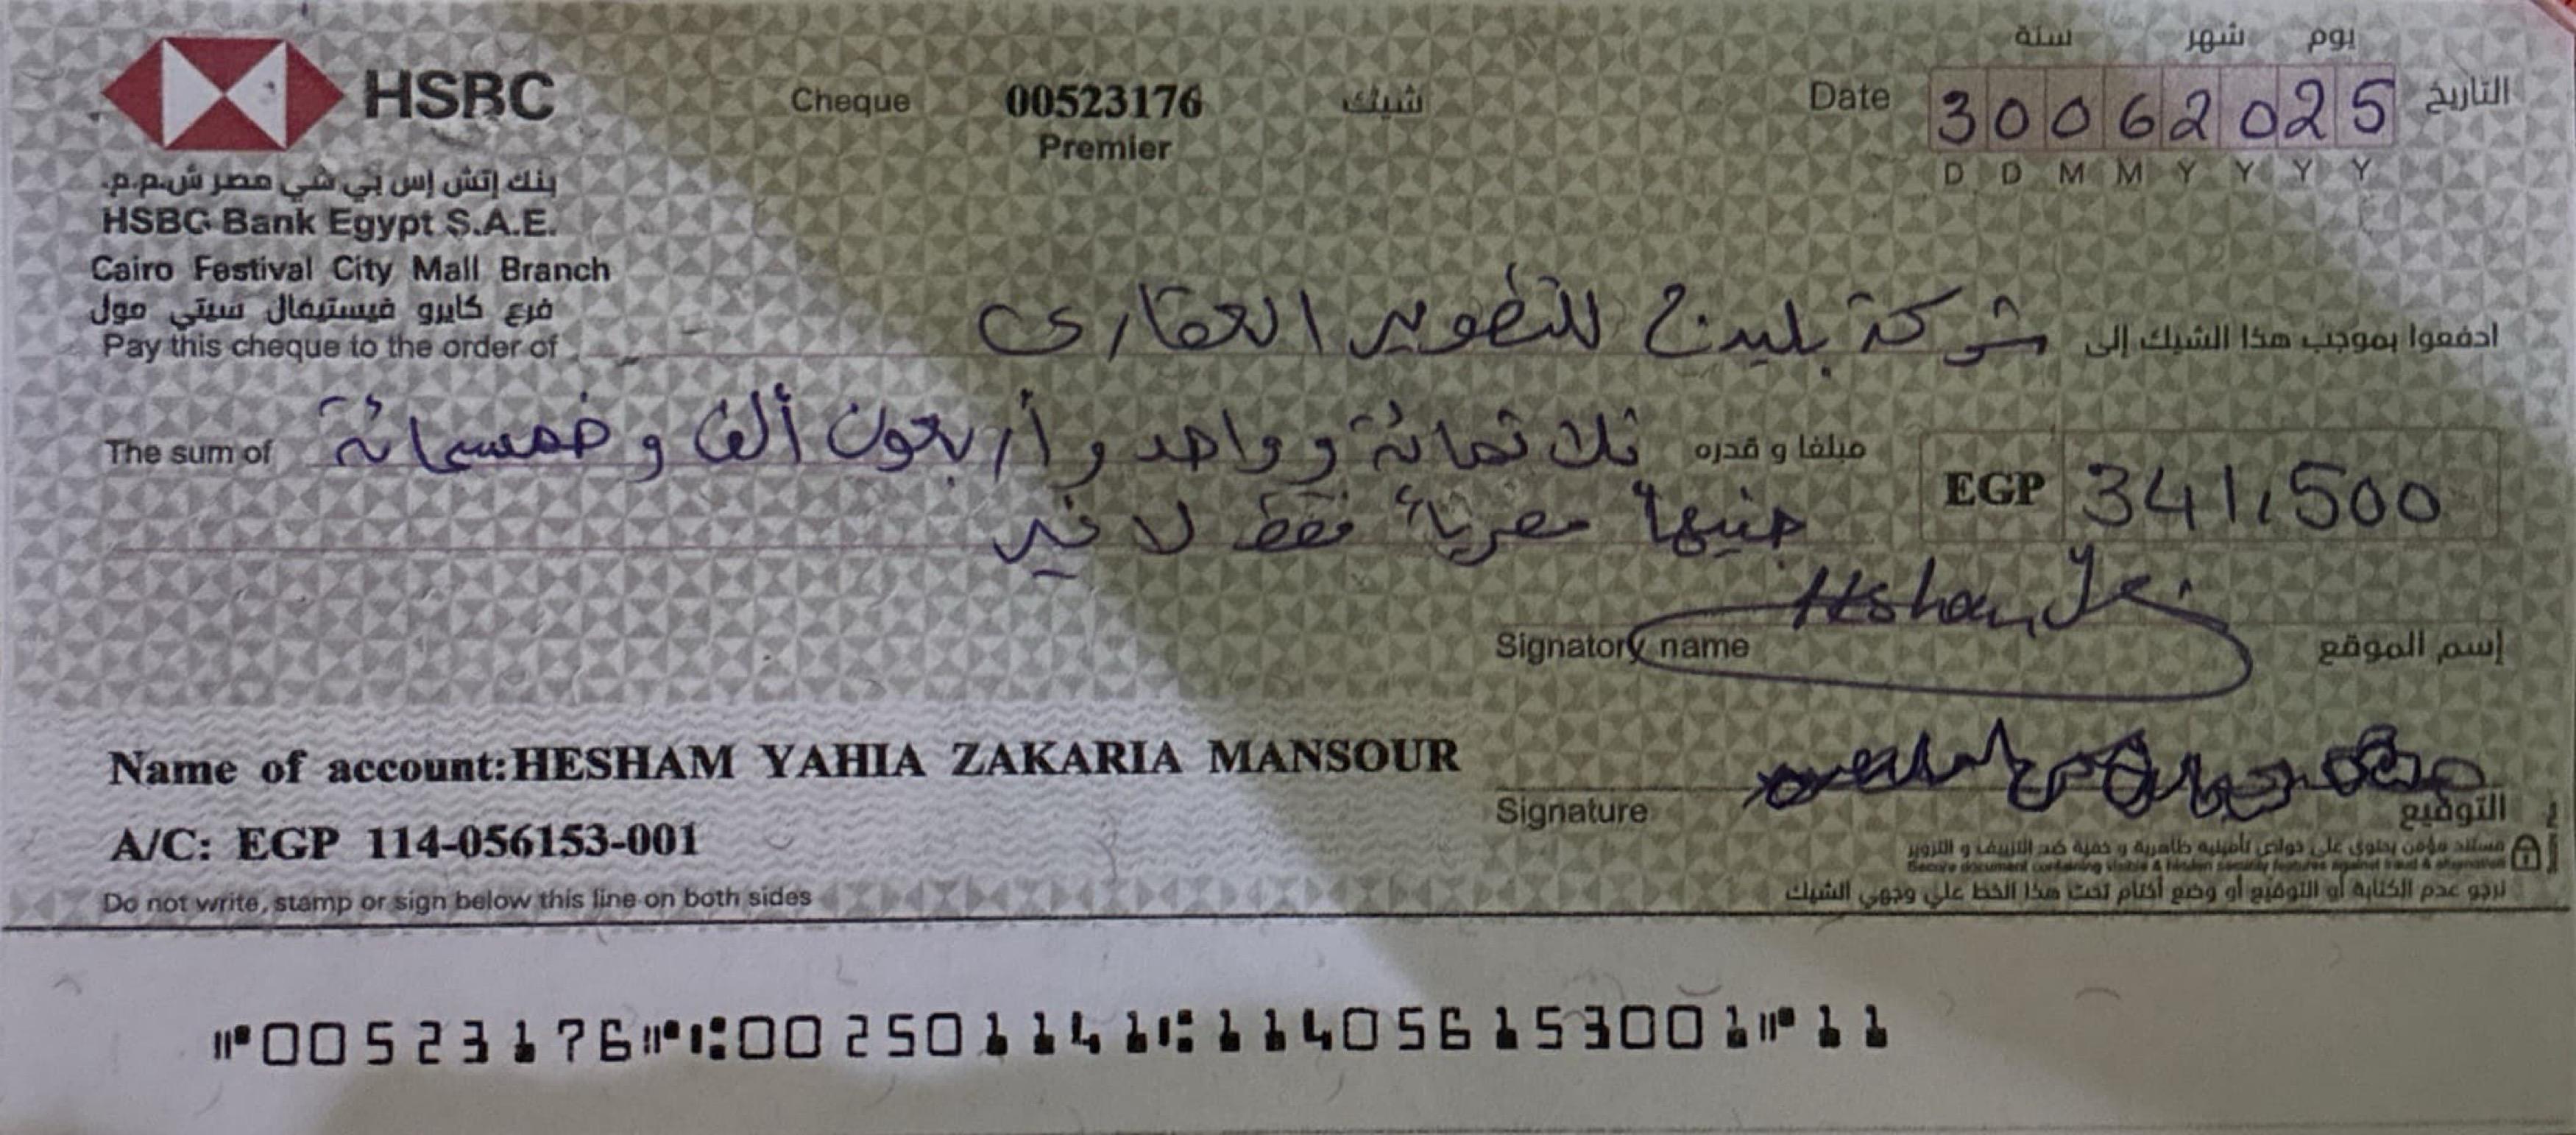 HSBC
بنك إتش إس بي سي مصر ش.م.م.
HSBC Bank Egypt S.A.E.
Cairo Festival City Mall Branch
فرع كايرو فيستيفال سيتي مول
Cheque 00523176 شيك
Premier
يوم شهر سنة
Date 30062025 التاريخ
D D M M Y Y Y Y
Pay this cheque to the order of شركة للتطوير العقارى ادفعوا بموجب هذا الشيك إلى
The sum of ثلاثمائة وواحد وأربعون ألف وخمسمائة مبلغا و قدره
جنيهاً مصرياً فقط لا غير
EGP 341,500
Hesham
Signatory name إسم الموقع
Name of account:HESHAM YAHIA ZAKARIA MANSOUR
A/C: EGP 114-056153-001
Signature التوقيع
مستند مؤمن يحتوى على خواص تأمينيه ظاهرية و خفية ضد التزييف و التزوير
Secure document containing visible & hidden security features against fraud & alteration
Do not write, stamp or sign below this line on both sides نرجو عدم الكتابة أو التوقيع أو وضع أختام تحت هذا الخط على وجهي الشيك
⑈00523176⑈⑆002501141⑆114056153001⑈11